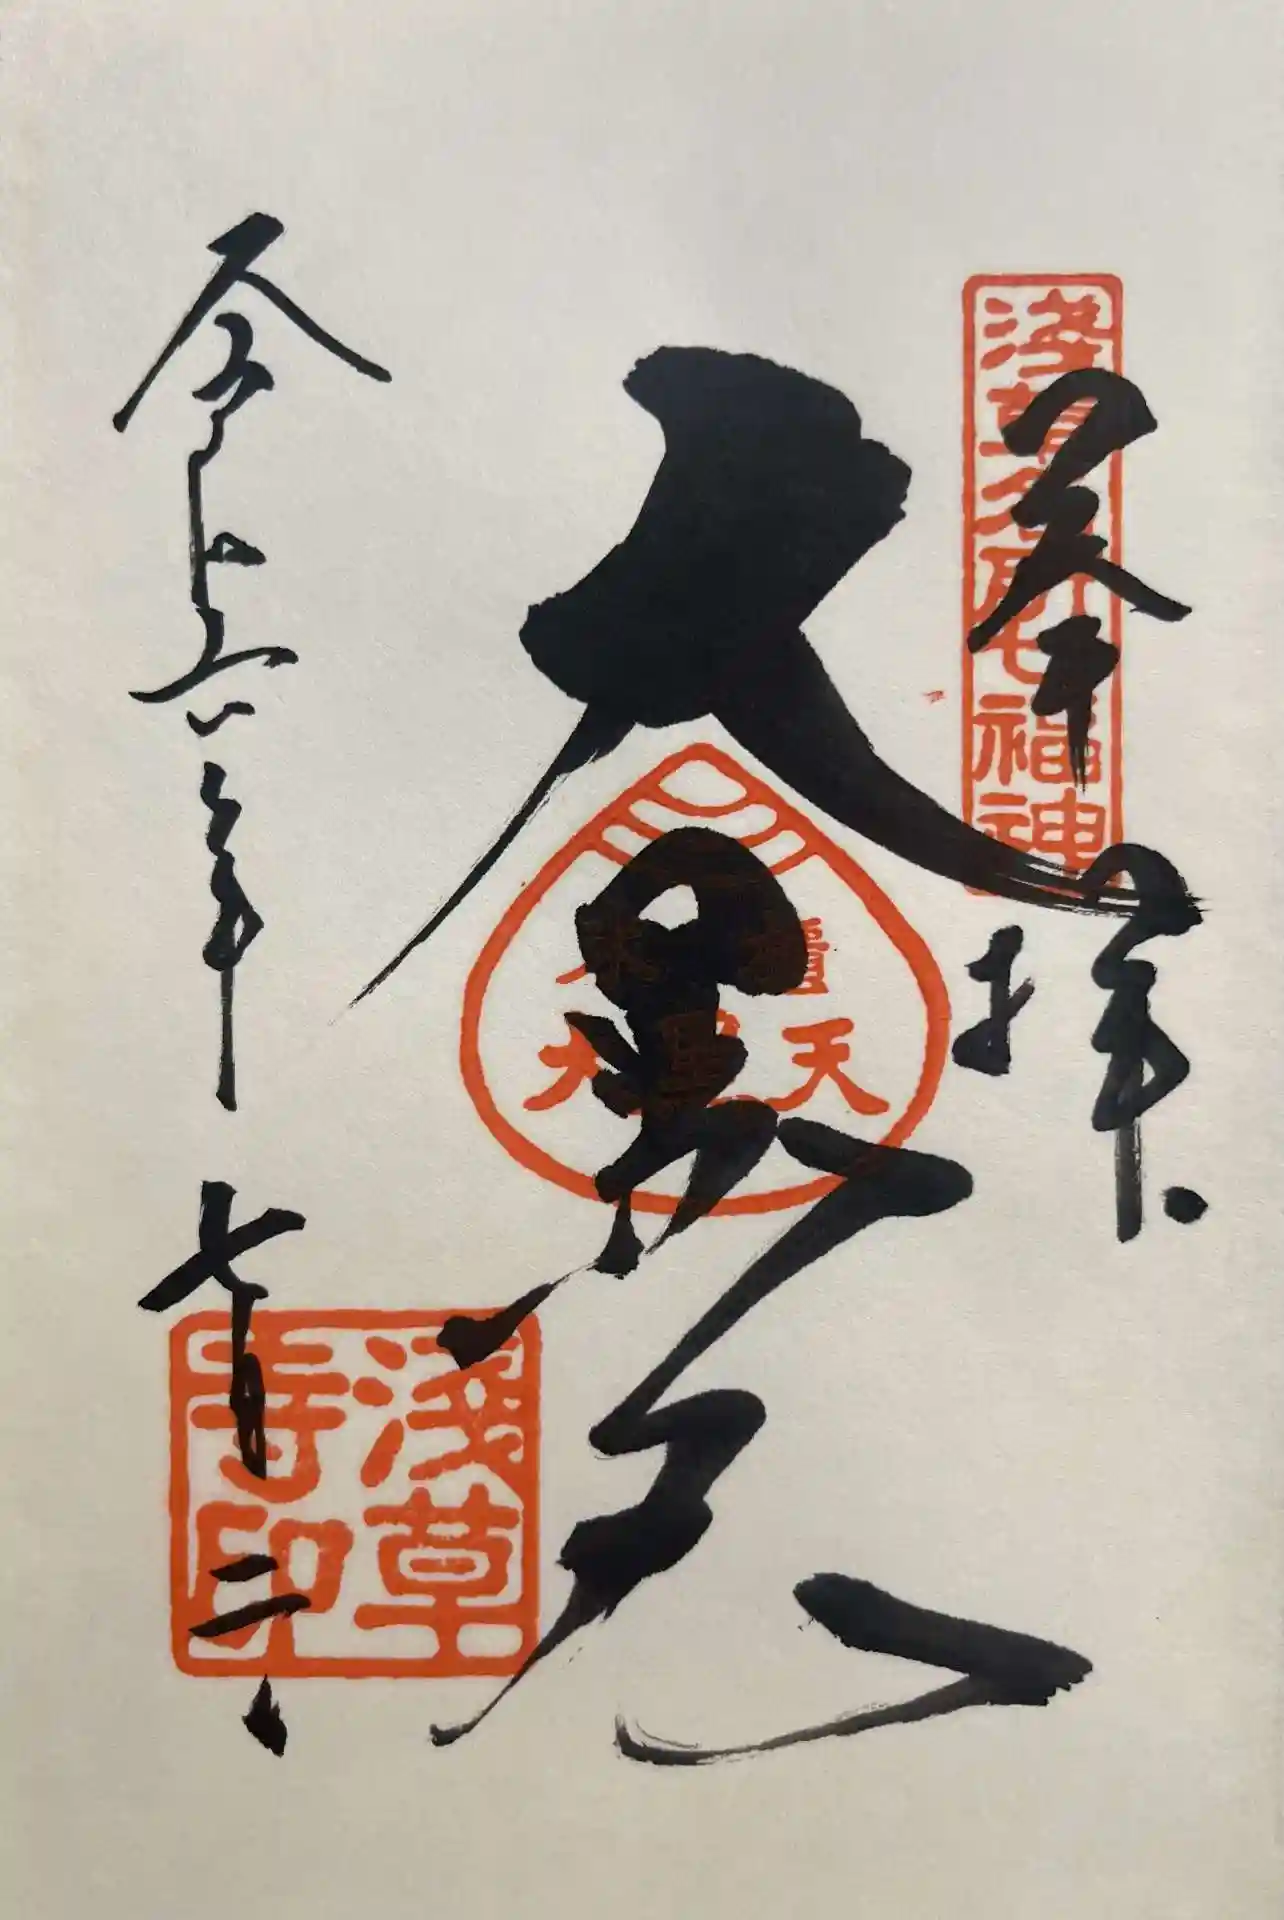 淺草名所七福神
奉拝
大黒天
大黒天
令和六年
七月二日
淺草
寺印